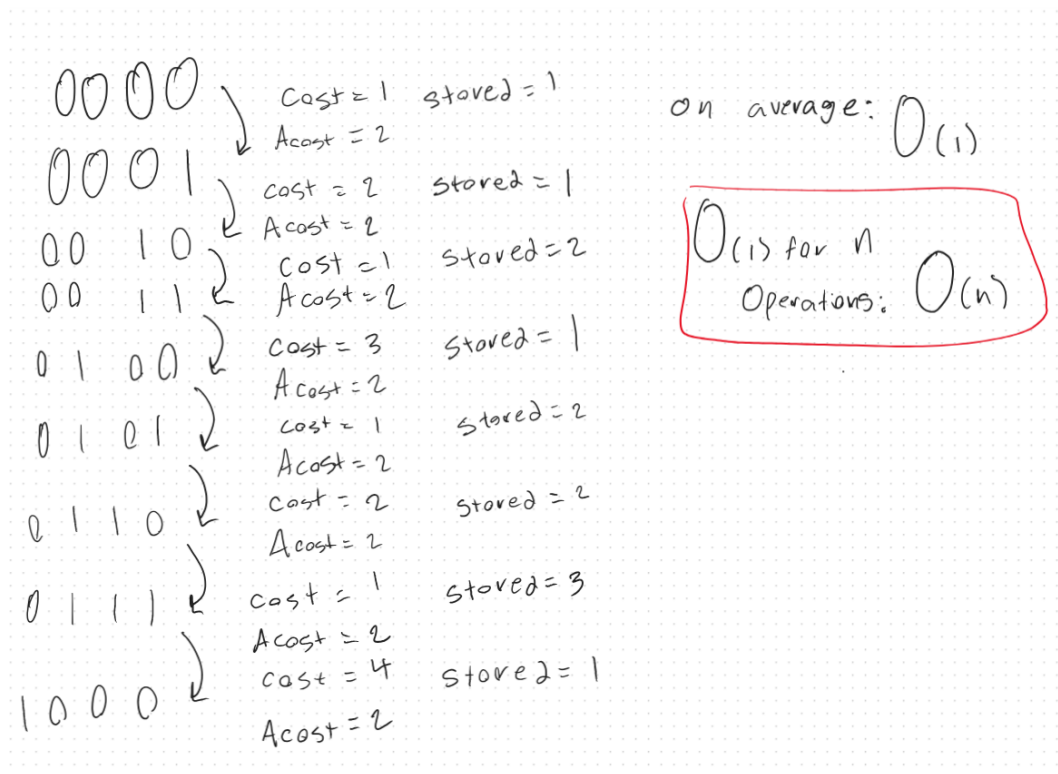 0000
cost = 1 stored = 1
Acost = 2
0001
cost = 2 stored = 1
Acost = 2
00 10
cost = 1 stored = 2
Acost = 2
00 11
cost = 3 stored = 1
Acost = 2
01 00
cost = 1 stored = 2
Acost = 2
01 01
cost = 2 stored = 2
Acost = 2
0110
cost = 1 stored = 3
Acost = 2
0111
cost = 4 stored = 1
Acost = 2
1000
on average: O(1)
O(1) for n
Operations: O(n)